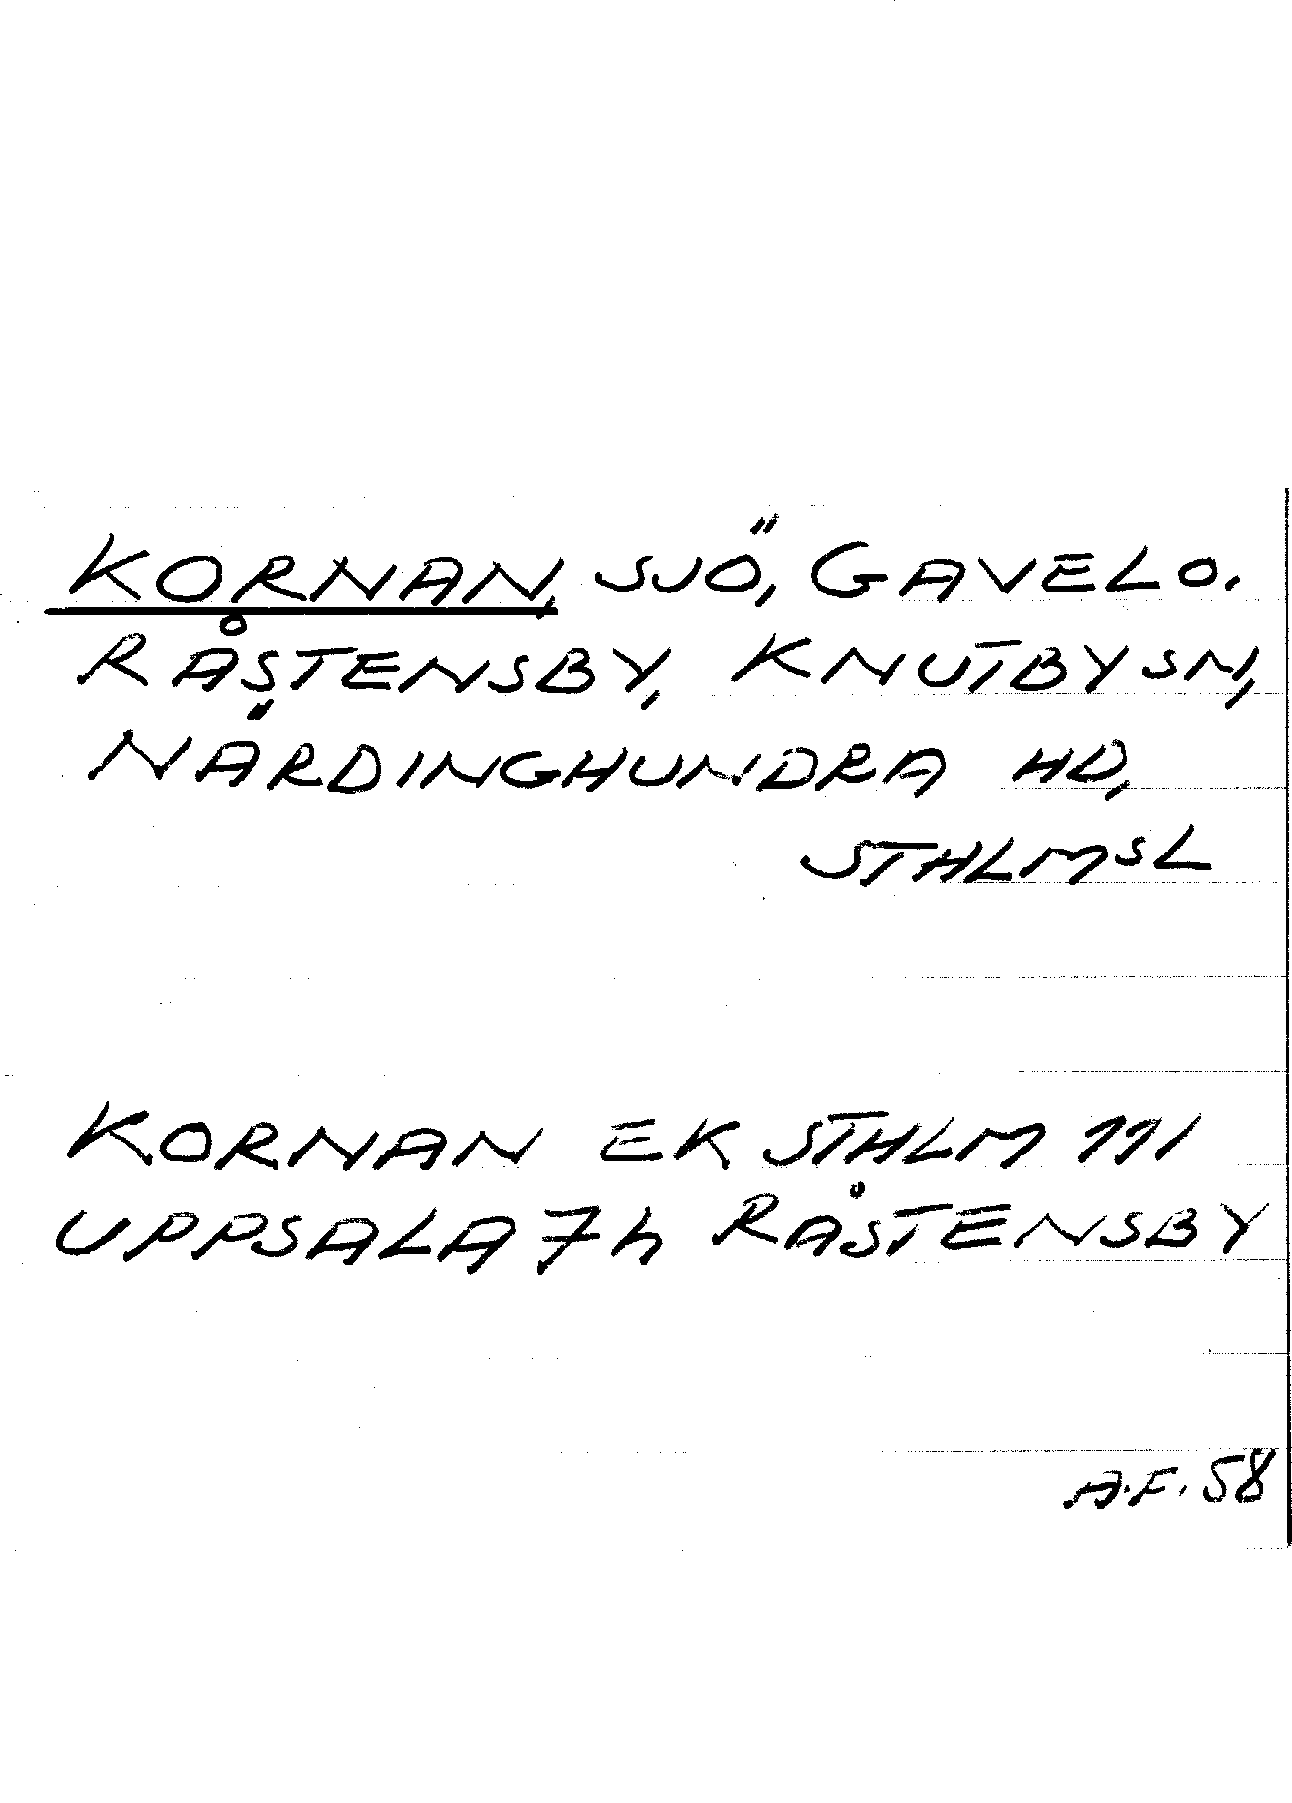 KORNAN, SJÖ, GAVEL O.
RÅSTENSBY, KNUTBY SN,
NÄRDINGHUNDRA HD,
STHLMS L
KORNAN EK STHLM 111
UPPSALA 7h RÅSTENSBY
A.F. 58